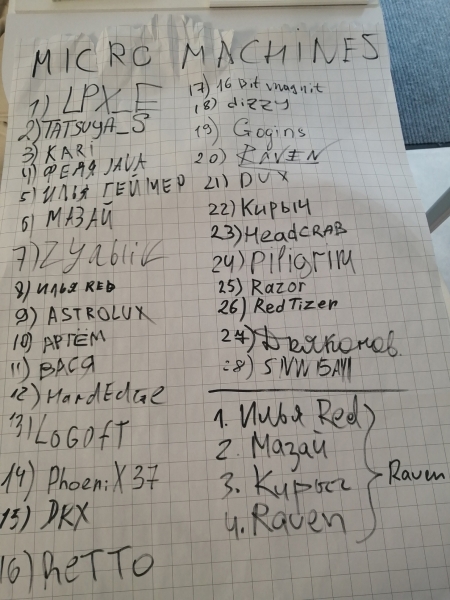 MICRO MACHINES
1) LPX_E
2) TATSUYA_S
3) KARI
4) ФЕЯ JAVA
5) ИЛЬЯ ГЕЙМЕР
6) МАЗАЙ
7) Zyablik
8) ИЛЬЯ RED
9) ASTROLUX
10) АРТЁМ
11) ВАСЯ
12) HardEdge
13) LOGOFT
14) PhoeniX 37
15) DKX
16) ReTTO
17) 16 bit
18) dizzy
19) Gogins
20) RAVEN
21) DVX
22) Кирыч
23) HeadCRAB
24) PILIGRIM
25) Razor
26) RedTizer
27) Дьяконов
28)
1. Илья Red
2. Мазай
3. Кирыч
4. Raven
Raven